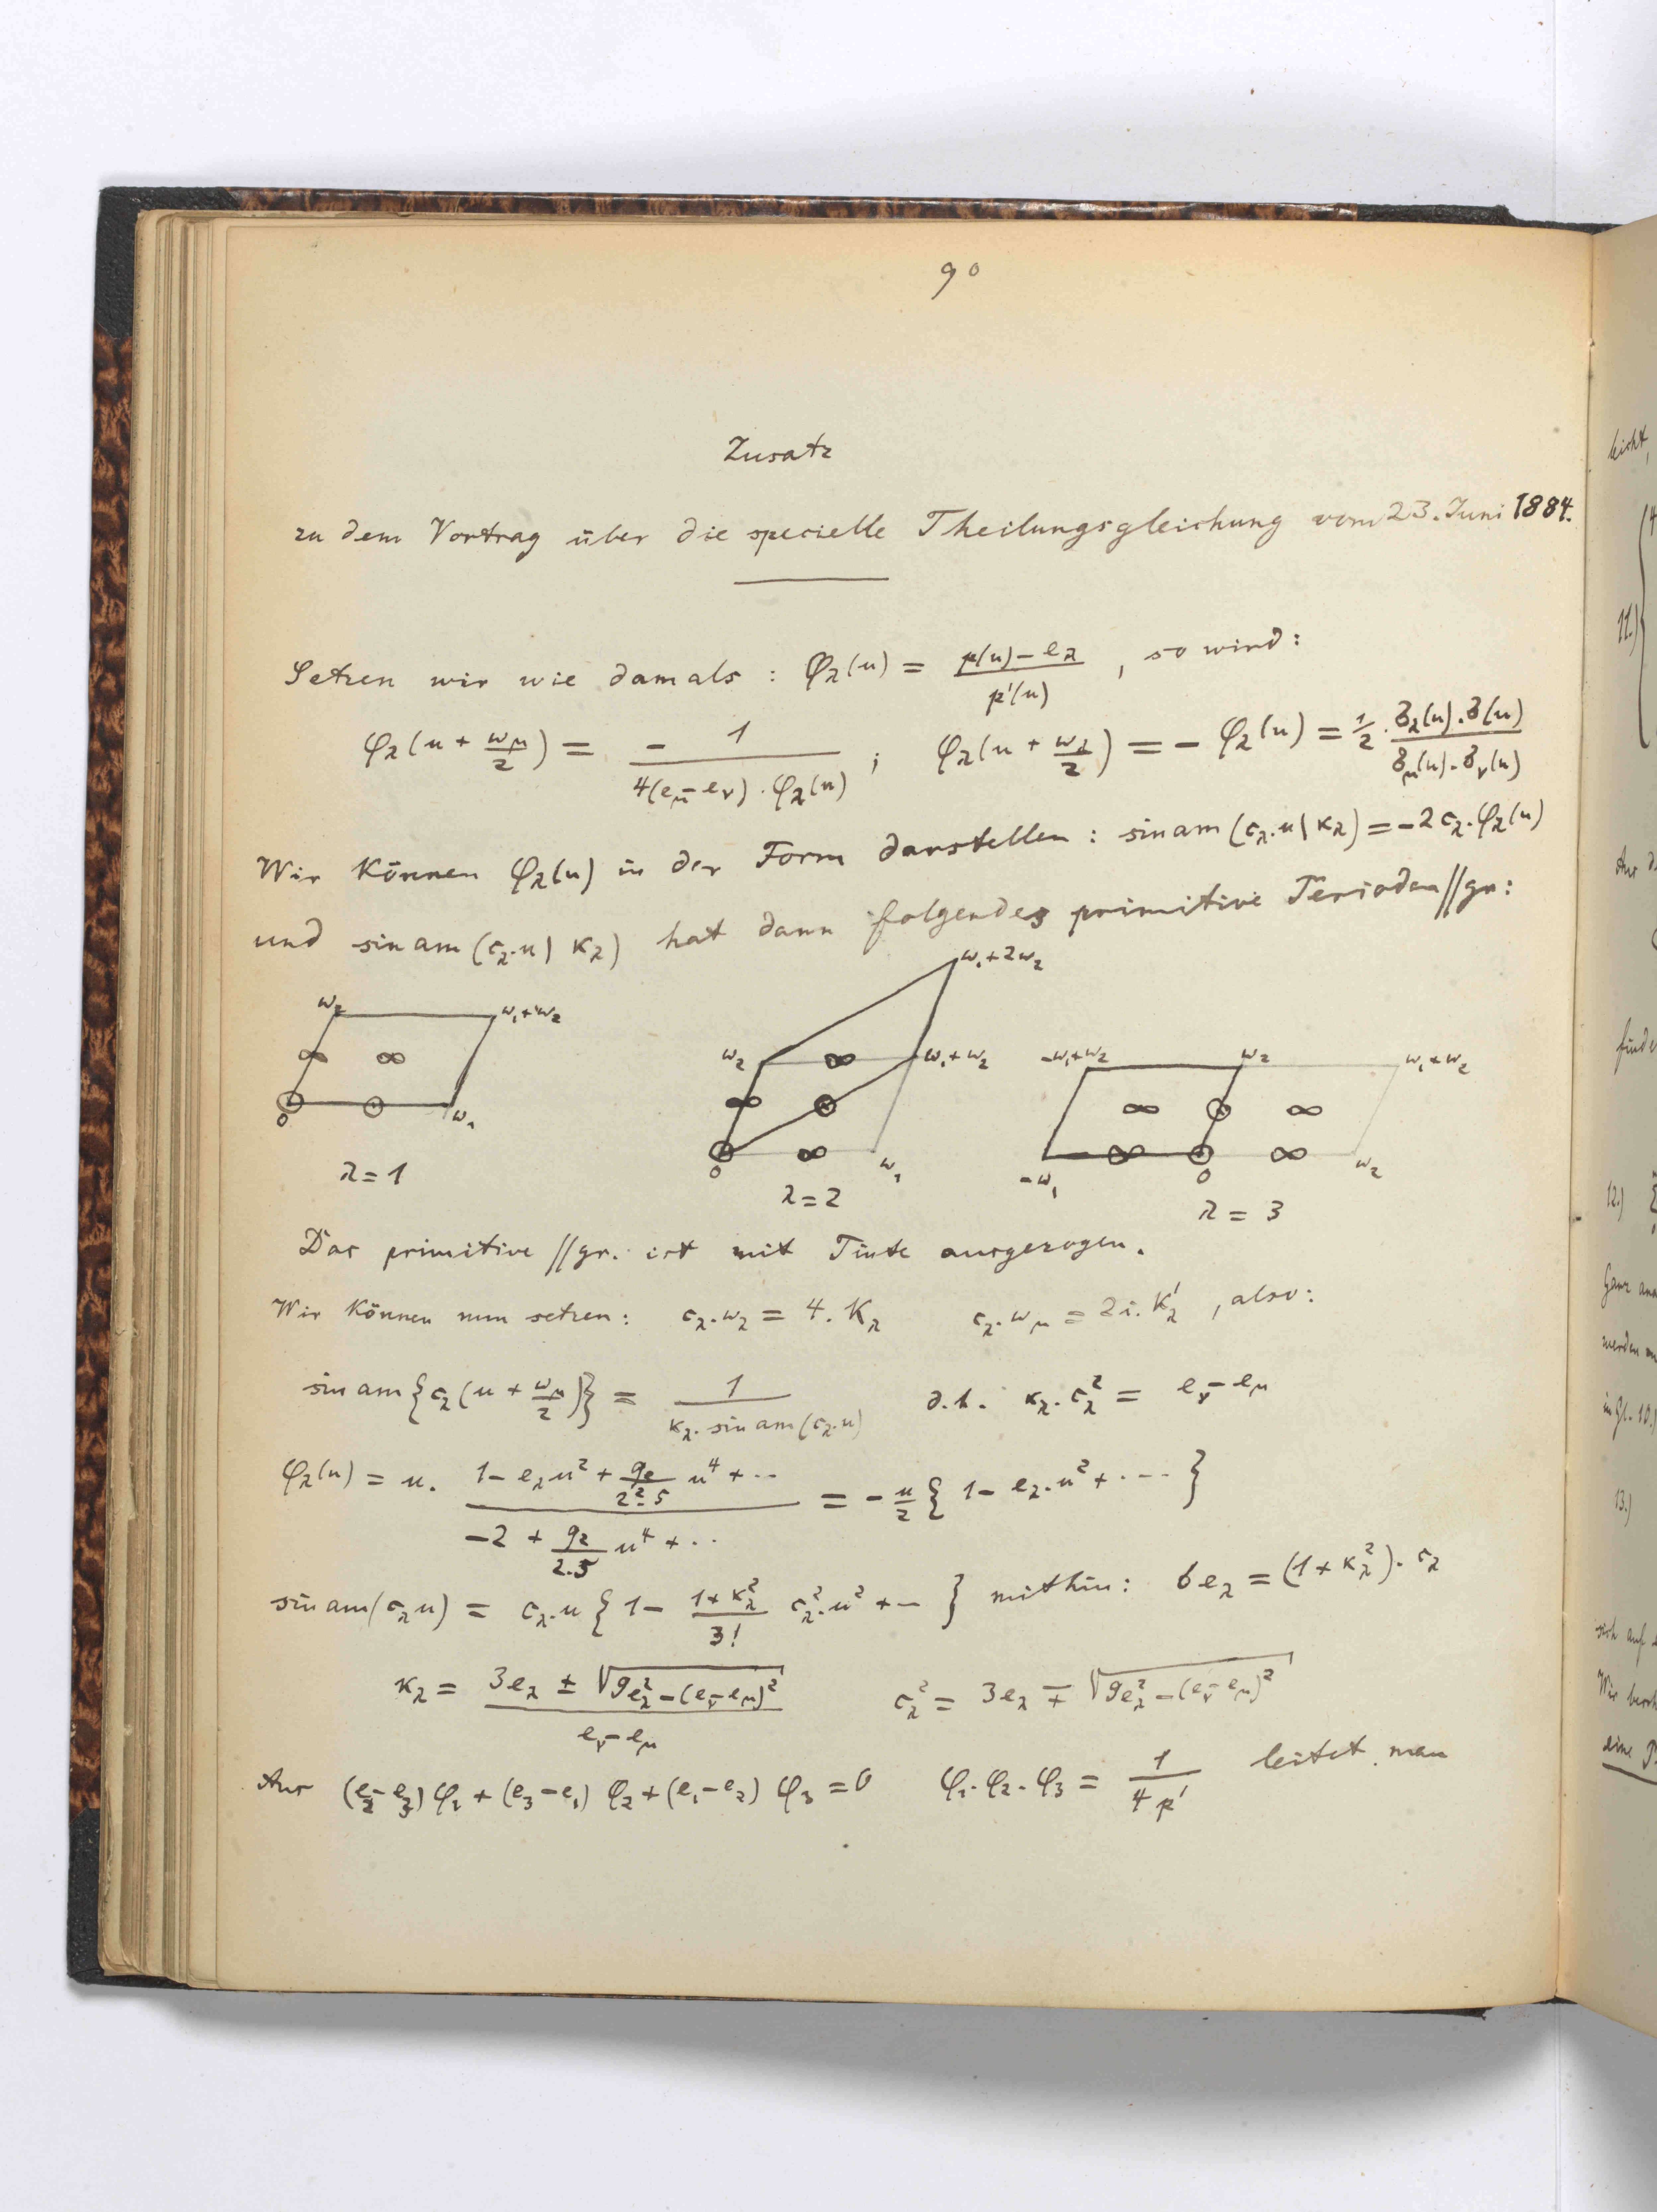 90
Zusatz
zu dem Vortrag über die specielle Theilungsgleichung vom 23. Juni 1884.
Setzen wir wie damals : φ_λ(u) = (p(u) − e_λ)/(p'(u)) , so wird :
φ_λ(u + ω_μ/2) = − 1/(4(e_μ − e_ν) . φ_λ(u)) ; φ_λ(u + ω_λ/2) = − φ_λ(u) = 1/2 . (σ_λ(u) . σ(u))/(σ_μ(u) . σ_ν(u))
Wir können φ_λ(u) in der Form darstellen : sin am (c_λ . u | κ_λ) = −2 c_λ . φ_λ(u)
und sin am (c_λ . u | κ_λ) hat dann folgendes primitive Perioden//gr :
ω₂ ω₁+ω₂ ∞ ∞ 0 ω₁
ω₁+2ω₂ ω₂ ∞ ω₁+ω₂ ∞ 0 ∞ ω₁
−ω₁+ω₂ ω₂ ω₁+ω₂ ∞ ∞ −ω₁ ∞ 0 ∞ ω₂
λ = 1 λ = 2 λ = 3
Das primitive //gr. ist mit Tinte ausgezogen.
Wir können nun setzen : c_λ . ω_λ = 4 . K_λ c_λ . ω_μ = 2i . K'_λ , also :
sin am {c_λ (u + ω_μ/2)} = 1/(κ_λ . sin am (c_λ . u)) d. h. κ_λ . c_λ² = e_ν − e_μ
φ_λ(u) = u . (1 − e_λ u² + g₂/(2² . 5) u⁴ + ··)/(−2 + g₂/(2.5) u⁴ + ··) = − u/2 { 1 − e_λ . u² + ··· }
sin am (c_λ u) = c_λ . u { 1 − (1 + κ_λ²)/3! c_λ² . u² + − } mithin : 6 e_λ = (1 + κ_λ²) . c_λ
κ_λ = (3e_λ ± √(9e_λ² − (e_ν − e_μ)²))/(e_ν − e_μ) c_λ² = 3e_λ ∓ √(9e_λ² − (e_ν − e_μ)²)
Aus (e₂ − e₃) φ₁ + (e₃ − e₁) φ₂ + (e₁ − e₂) φ₃ = 0 φ₁ . φ₂ . φ₃ = 1/(4 p') leitet man